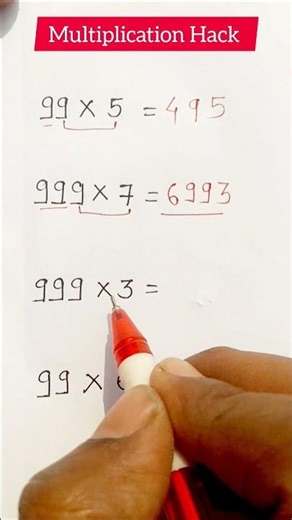 Multiplication Hack
99 × 5 = 495
999 × 7 = 6993
999 × 3 =
99 ×